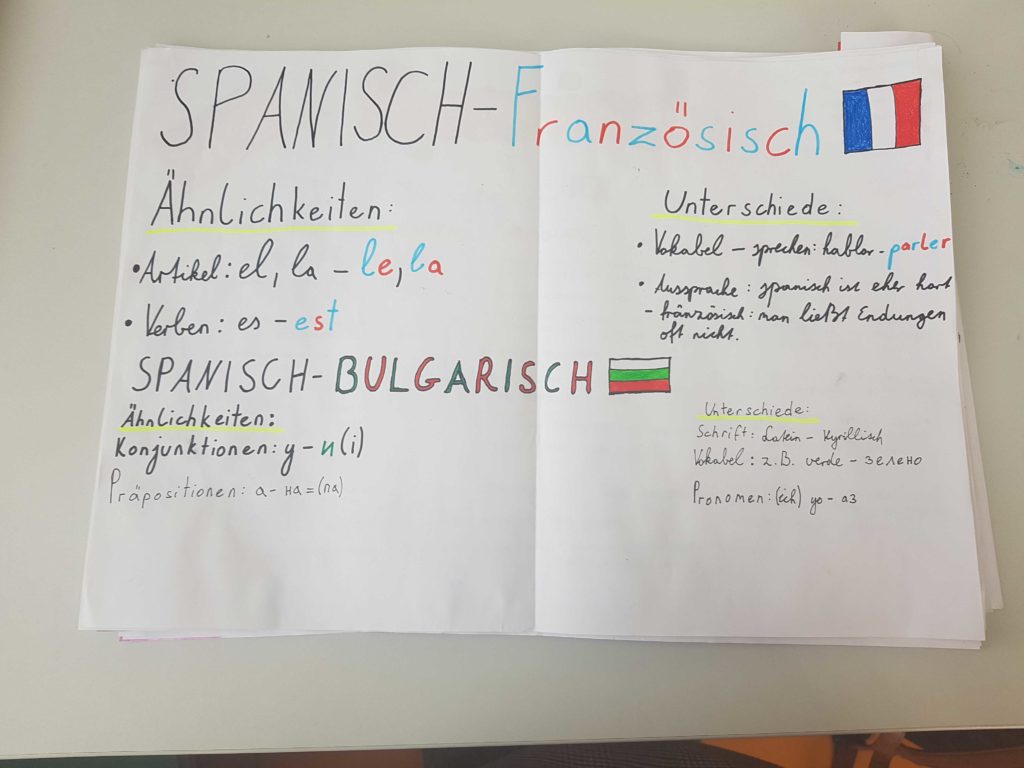 SPANISCH-Französisch
Ähnlichkeiten:
• Artikel: el, la - le, la
• Verben: es - est
Unterschiede:
• Vokabel - sprechen: hablar - parler
• Aussprache: spanisch ist eher hart
- französisch: man ließt Endungen
oft nicht.
SPANISCH-BULGARISCH
Ähnlichkeiten:
Konjunktionen: y - и (i)
Präpositionen: a - на = (na)
Unterschiede:
Schrift: Latein - Kyrillisch
Vokabel: z.B. verde - зелено
Pronomen: (ich) yo - аз